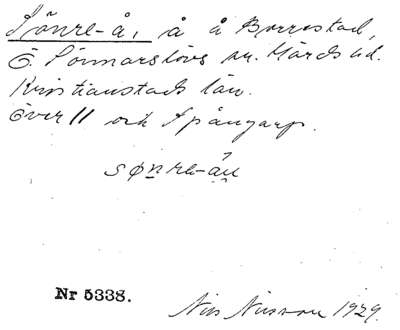 Sönre-å, å å Borrestad,
Ö. Sönnarslövs sn. Gärds hd.
Kristianstads län.
Över II och Spångarp.
sønre-ân
Nr 5338.
Nils Nilsson 1929.